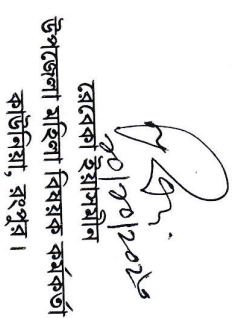 ৩০/১০/২০২৩
রেবেকা ইয়াসমীন
উপজেলা মহিলা বিষয়ক কর্মকর্তা
কাউনিয়া, রংপুর।